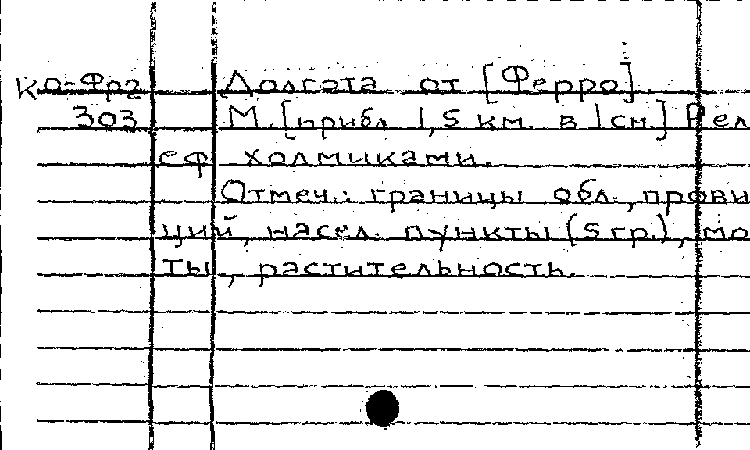 Ко-Фр2 Долгота от [Ферро].
303 М.[прибл 1,5 км. в 1см.] Рел
еф холмиками.
Отмеч.: границы обл., прови
ций, насел. пункты (5 гр.), мо
ты, растительность.